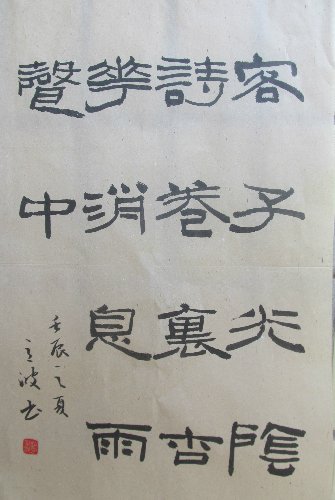 客子光陰
詩卷裏杏
華消息雨
聲中
壬辰之夏
立波书